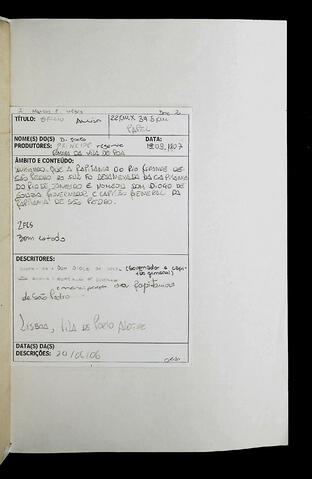 TÍTULO: OFÍCIO Avulso 22cm X 34,5cm
PAPEL
NOME(S) DO(S) D. João
PRODUTORES: PRÍNCIPE regente DATA:
CÂMARA DA VILA DE POA 19.09.1807
ÂMBITO E CONTEÚDO:
AVISANDO QUE A CAPITANIA DO RIO GRANDE DE
SÃO PEDRO DO SUL FOI DESANEXADA DA CAPITANIA
DO RIO DE JANEIRO E NOMEOU DOM DIOGO DE
SOUZA GOVERNADOR E CAPITÃO GENERAL DA
CAPITANIA DE SÃO PEDRO.
2FLS
Bom estado
DESCRITORES:
DOM DIOGO DE (Governador e capi-
tão general)
da Capitania
de São Pedro
LISBOA, VILA DE PORTO ALEGRE
DATA(S) DA(S)
DESCRIÇÕES: 20/06/06